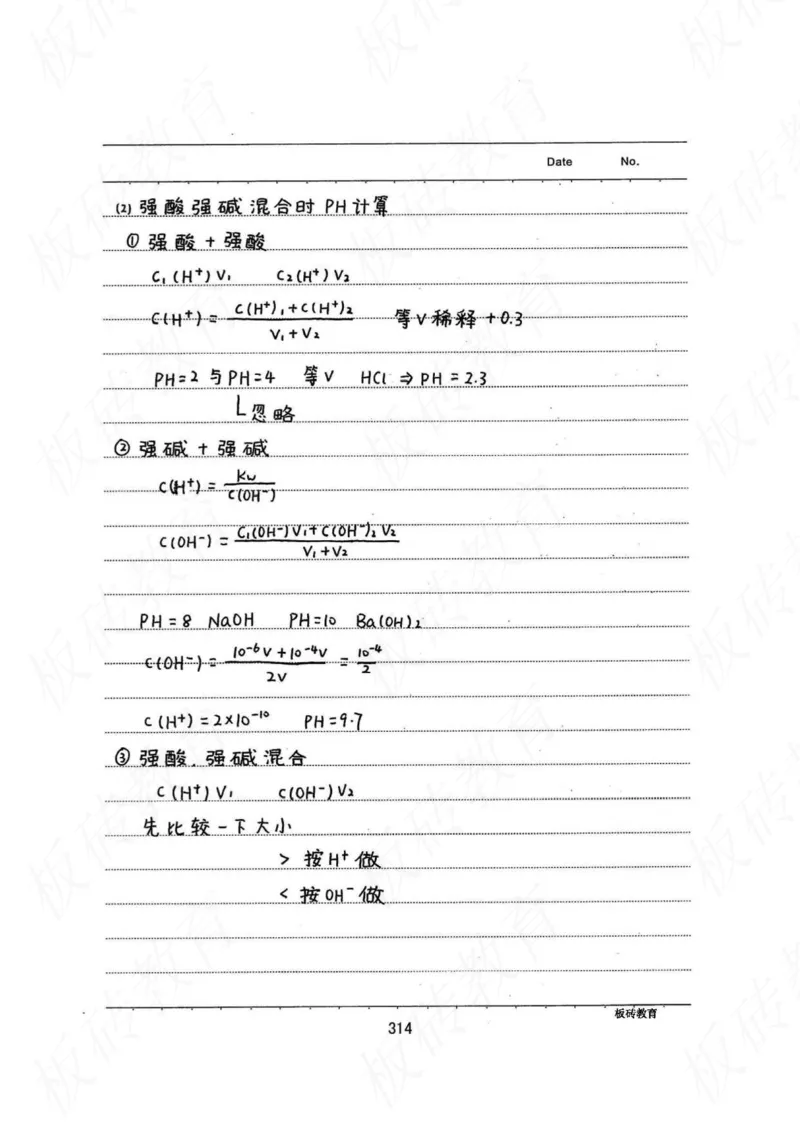 Date No.
(2) 强酸强碱混合时 PH计算
① 强酸 + 强酸
C₁(H⁺)V₁ C₂(H⁺)V₂
C(H⁺) = \frac{C(H⁺)₁+C(H⁺)₂}{V₁+V₂} 等V稀释 +0.3
PH=2 与 PH=4 等V HCl ⇒ PH = 2.3
忽略
② 强碱 + 强碱
C(H⁺) = \frac{Kw}{C(OH⁻)}
C(OH⁻) = \frac{C₁(OH⁻)V₁+C(OH⁻)₂V₂}{V₁+V₂}
PH = 8 NaOH PH=10 Ba(OH)₂
C(OH⁻) = \frac{10⁻⁶V+10⁻⁴V}{2V} = \frac{10⁻⁴}{2}
C(H⁺) = 2×10⁻¹⁰ PH=9.7
③ 强酸.强碱混合
C(H⁺)V₁ C(OH⁻)V₂
先比较一下大小
> 按H⁺做
< 按OH⁻做
板砖教育
314